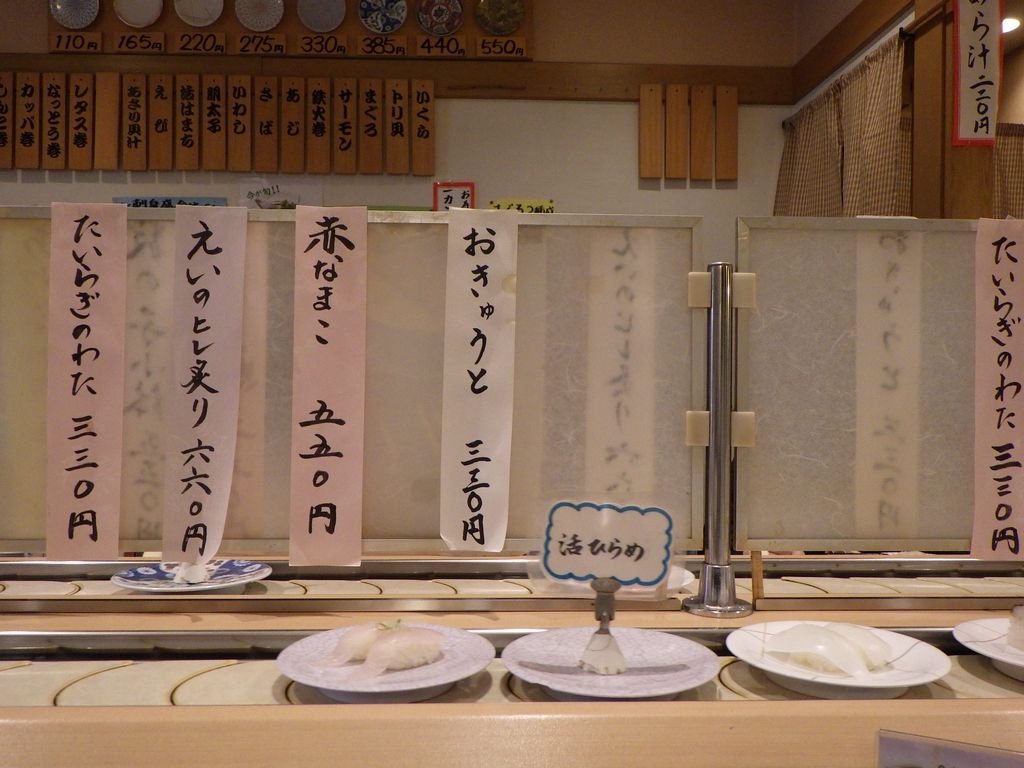 110円 165円 220円 275円 330円 385円 440円 550円
いくら
トリ貝
まぐろ
サーモン
鉄火巻
あじ
さば
いわし
明太子
活はまち
えび
あさり貝汁
レタス巻
なっとう巻
カッパ巻
しんこ巻
今が旬!!
たいらぎのわた 三三〇円
おきゅうと 三三〇円
赤なまこ 五五〇円
えいのヒレ炙り 六六〇円
たいらぎのわた 三三〇円
活ひらめ